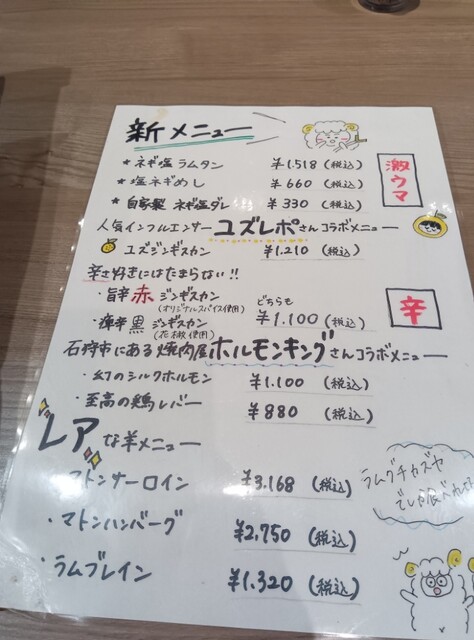 新メニュー
★ ネギ塩 ラムタン ¥1.518 (税込)
★ 塩ネギめし ¥660 (税込)
★ 自家製 ネギ塩ダレ ¥330 (税込)
激ウマ
人気インフルエンサー ユズレポさんコラボメニュー
ユズジンギスカン ¥1.210 (税込)
辛さ好きにはたまらない!!
・旨辛 赤 ジンギスカン どちらも
(オリジナルスパイス使用) ¥1.100 (税込)
辛
・痺辛 黒 ジンギスカン
(花椒使用)
石狩市にある焼肉屋 ホルモンキングさんコラボメニュー
・幻のシルクホルモン ¥1.100 (税込)
・至高の鶏レバー ¥880 (税込)
レアな羊メニュー
マトンサーロイン ¥3.168 (税込)
・マトンハンバーグ ¥2.750 (税込)
・ラムブレイン ¥1.320 (税込)
ラムグチカズヤ
でしか食べれない